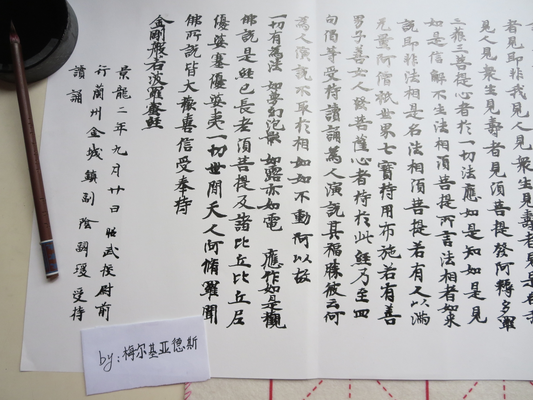 者見即非我見人見眾生見壽者見是名我
見人見眾生見壽者見須菩提發阿耨多羅
三藐三菩提心者於一切法應如是知如是見
如是信解不生法相須菩提所言法相者如來
說即非法相是名法相須菩提若有人以滿
无量阿僧祇世界七寶持用布施若有善
男子善女人發菩薩心者持於此經乃至四
句偈等受持讀誦為人演說其福勝彼云何
為人演說不取於相如如不動何以故
一切有為法 如夢幻泡影 如露亦如電 應作如是觀
佛說是經已長老須菩提及諸比丘比丘尼
優婆塞優婆夷一切世間天人阿脩羅聞
佛所說皆大歡喜信受奉持
金剛般若波羅蜜經
景龍二年九月廿日 昭武校尉前
行蘭州金城鎮副 陰嗣瑗受持
讀誦
by:梅尔基亚德斯